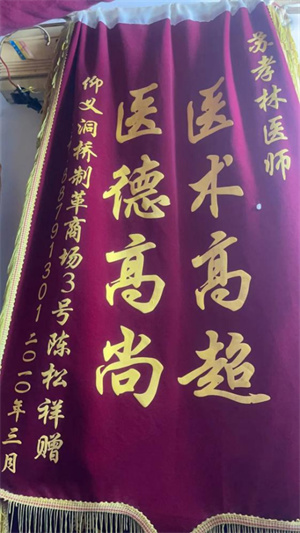 苏孝林医师
医术高超
医德高尚
仰义洞桥制革商场3号陈松祥赠
88791301
二〇一〇年三月